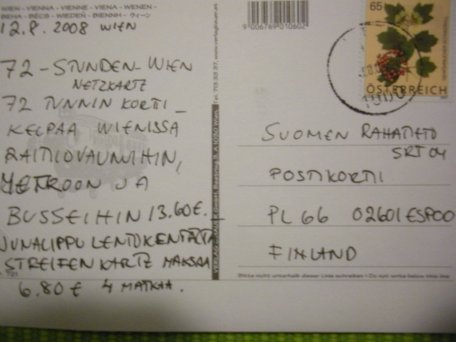 WIEN - VIENNA - VIENNE - VIENA - WENEN -
BEHA - BÉCS - WIEDEŃ - BIENNH - ウィーン
12.8. 2008 WIEN
72 - STUNDEN - WIEN
NETZKARTE
72 TUNNIN KORTI -
KELPAA WIENISSA
RAITIOVAUNUIHIN,
METROON JA
BUSSEIHIN 13.60€.
JUNALIPPU LENTOKENTÄLTÄ
STREIFENKARTE MAKSAA
6,80€ 4 MATKAA.
9006789010602
65
ÖSTERREICH
SUOMEN RAHATIETO
SRT 04
POSTIKORTI
PL 66 02601 ESPOO
FINLAND
Bitte nicht unterhalb dieser Linie schreiben / Do not write below this line